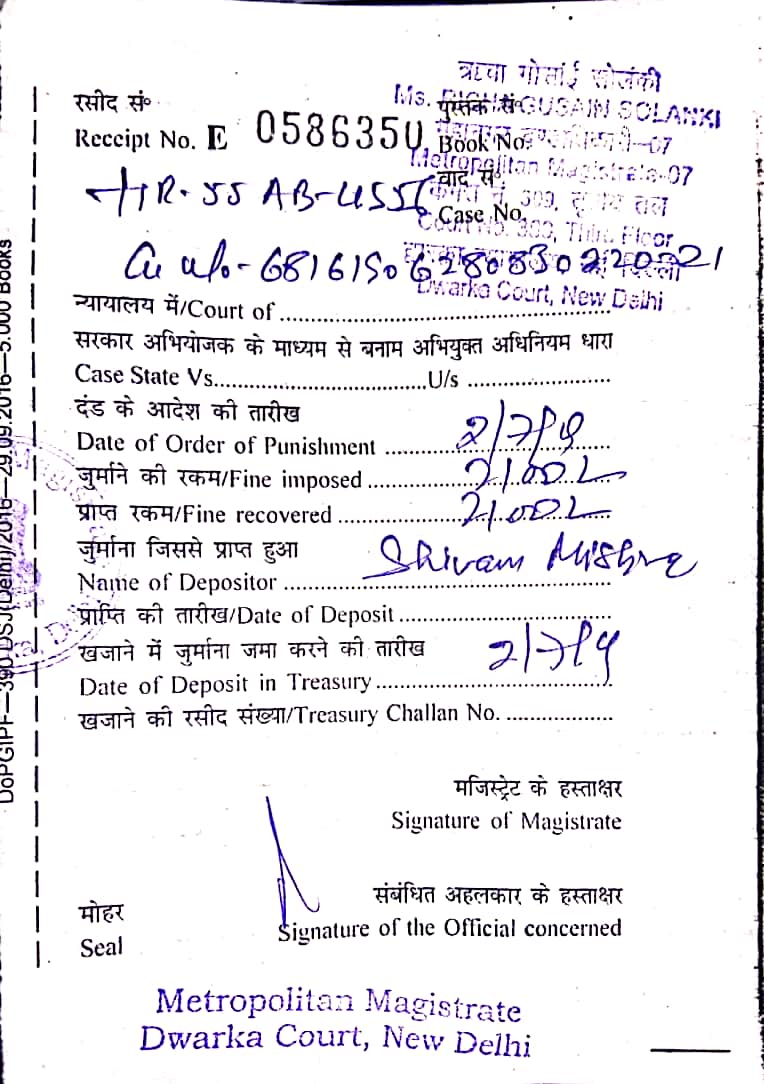 ऋचा गोसाई सोलंकी
रसीद सं॰
पुस्तक सं॰
Ms. RICHA GUSAIN SOLANKI
Receipt No. E 0586350
Book No.
Metropolitan Magistrate-07
वाद सं॰
HR-55 AB-4556
Case No.
Court No. 309, Third Floor
68161506280830220021
Dwarka Court, New Delhi
न्यायालय में/Court of
सरकार अभियोजक के माध्यम से बनाम अभियुक्त अधिनियम धारा
Case State Vs.............................U/s
दंड के आदेश की तारीख
Date of Order of Punishment 2/7/19
जुर्माने की रकम/Fine imposed 2100/-
प्राप्त रकम/Fine recovered 2100/-
जुर्माना जिससे प्राप्त हुआ
Name of Depositor Shivam Mishra
प्राप्ति की तारीख/Date of Deposit
खजाने में जुर्माना जमा करने की तारीख
Date of Deposit in Treasury 2/7/19
खजाने की रसीद संख्या/Treasury Challan No.
मजिस्ट्रेट के हस्ताक्षर
Signature of Magistrate
संबंधित अहलकार के हस्ताक्षर
मोहर
Signature of the Official concerned
Seal
Metropolitan Magistrate
Dwarka Court, New Delhi
DoPGIPF—390 DSJ(Delhi)/2016—29.09.2016—5.000 Books